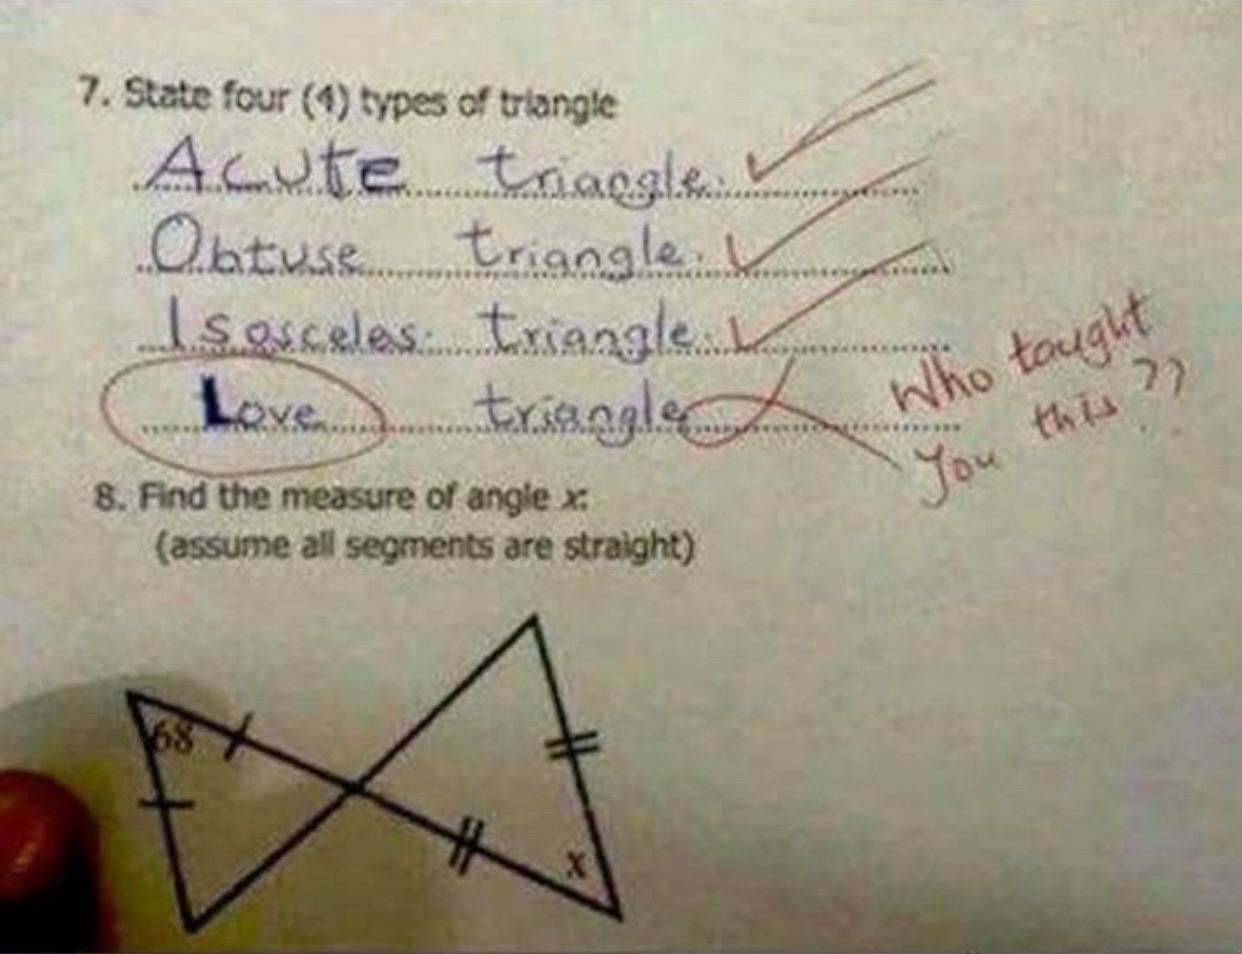 7. State four (4) types of triangle
Acute triangle.
Obtuse triangle.
Isosceles. triangle.
Love triangle
Who tought
you this ??
8. Find the measure of angle x:
(assume all segments are straight)
68
x